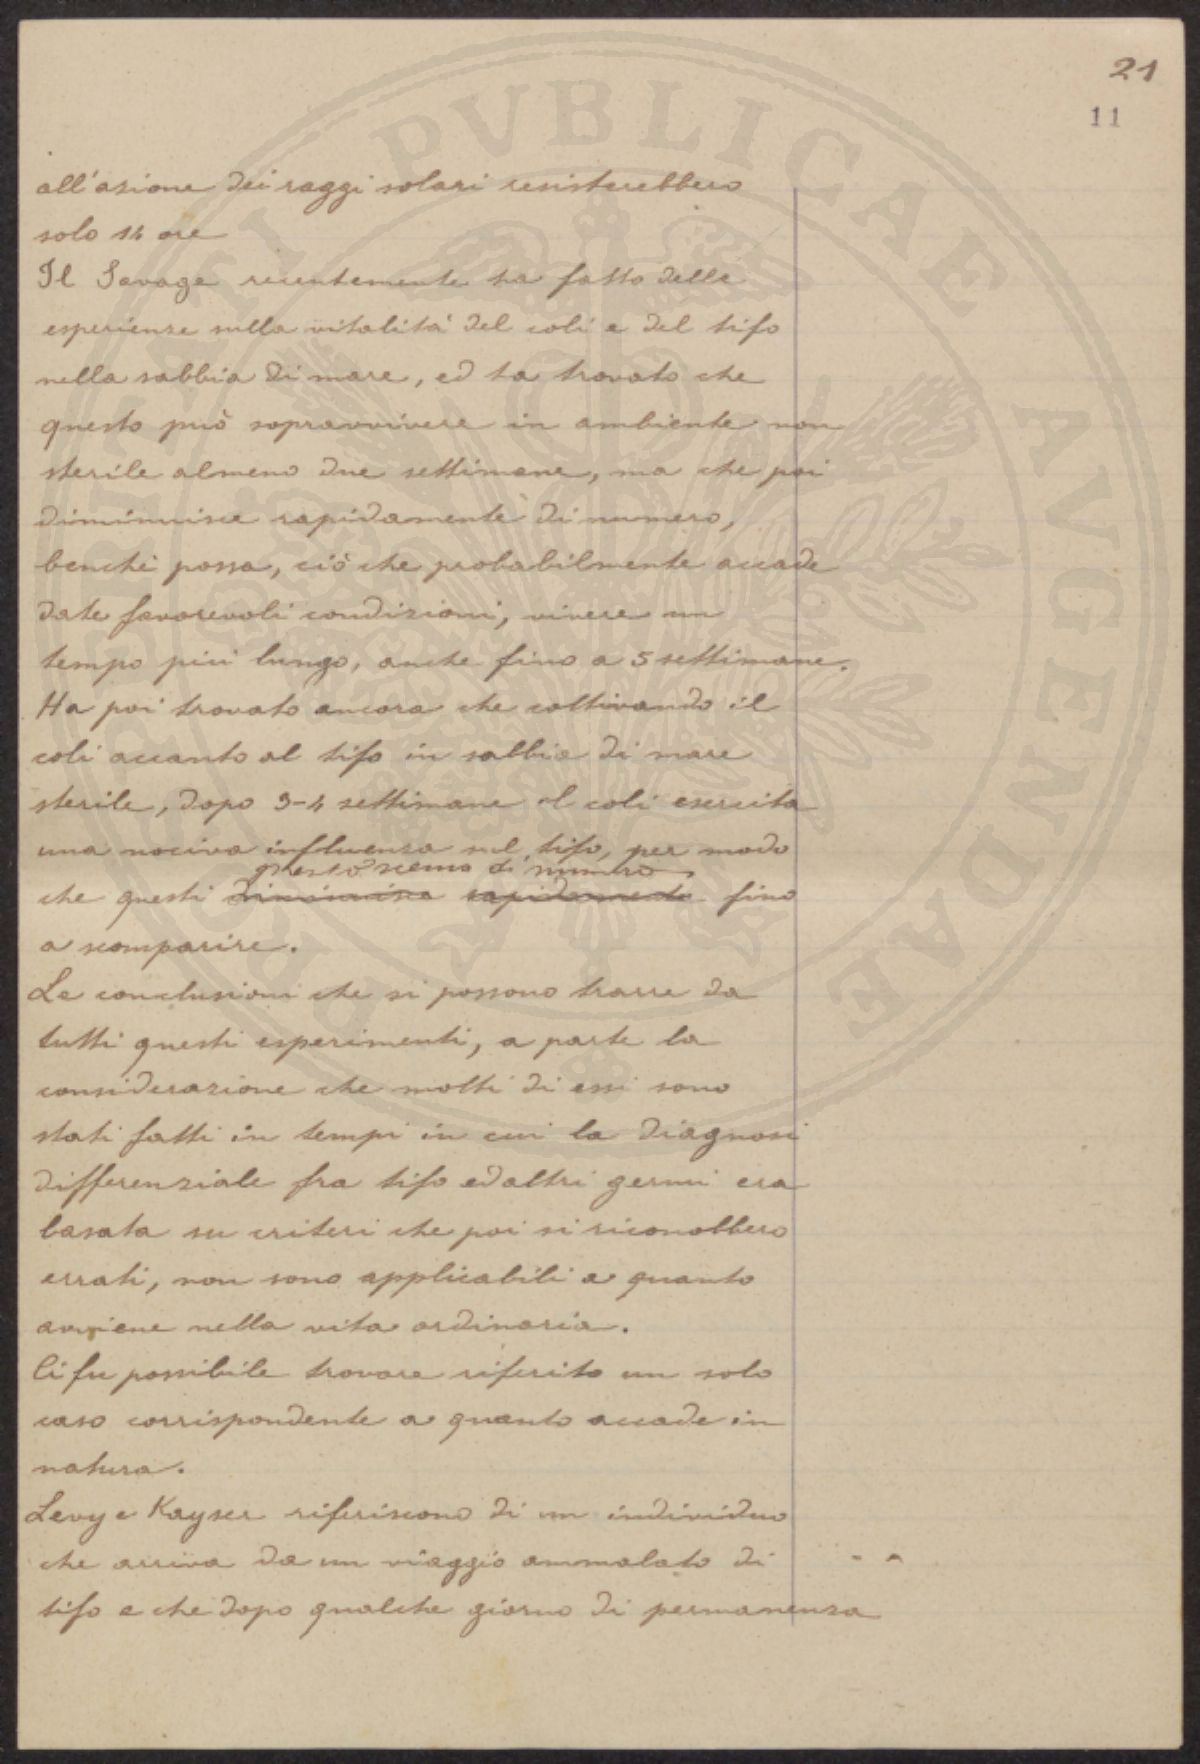 21
11
all'azione dei raggi solari resisterebbero
solo 14 ore
Il Savage recentemente ha fatto delle
esperienze sulla vitalità del coli e del tifo
nella sabbia di mare, ed ha trovato che
questo può sopravvivere in ambiente non
sterile almeno due settimane, ma che poi
diminuisce rapidamente di numero,
benchè possa, ciò che probabilmente accade
date favorevoli condizioni, vivere un
tempo più lungo, anche fino a 5 settimane.
Ha poi trovato ancora che coltivando il
coli accanto al tifo in sabbia di mare
sterile, dopo 3-4 settimane il coli esercita
una nociva influenza sul tifo, per modo
questo scema di numero
che questi diminuisca rapidamente fino
a scomparire.
Le conclusioni che si possono trarre da
tutti questi esperimenti, a parte la
considerazione che molti di essi sono
stati fatti in tempi in cui la diagnosi
differenziale fra tifo ed altri germi era
basata su criteri che poi si riconobbero
errati, non sono applicabili a quanto
avviene nella vita ordinaria.
Ci fu possibile trovare riferito un solo
caso corrispondente a quanto accade in
natura.
Levy e Kayser riferiscono di un individuo
che arriva da un viaggio ammalato di
tifo e che dopo qualche giorno di permanenza
PUBLICAE AVGENDAE